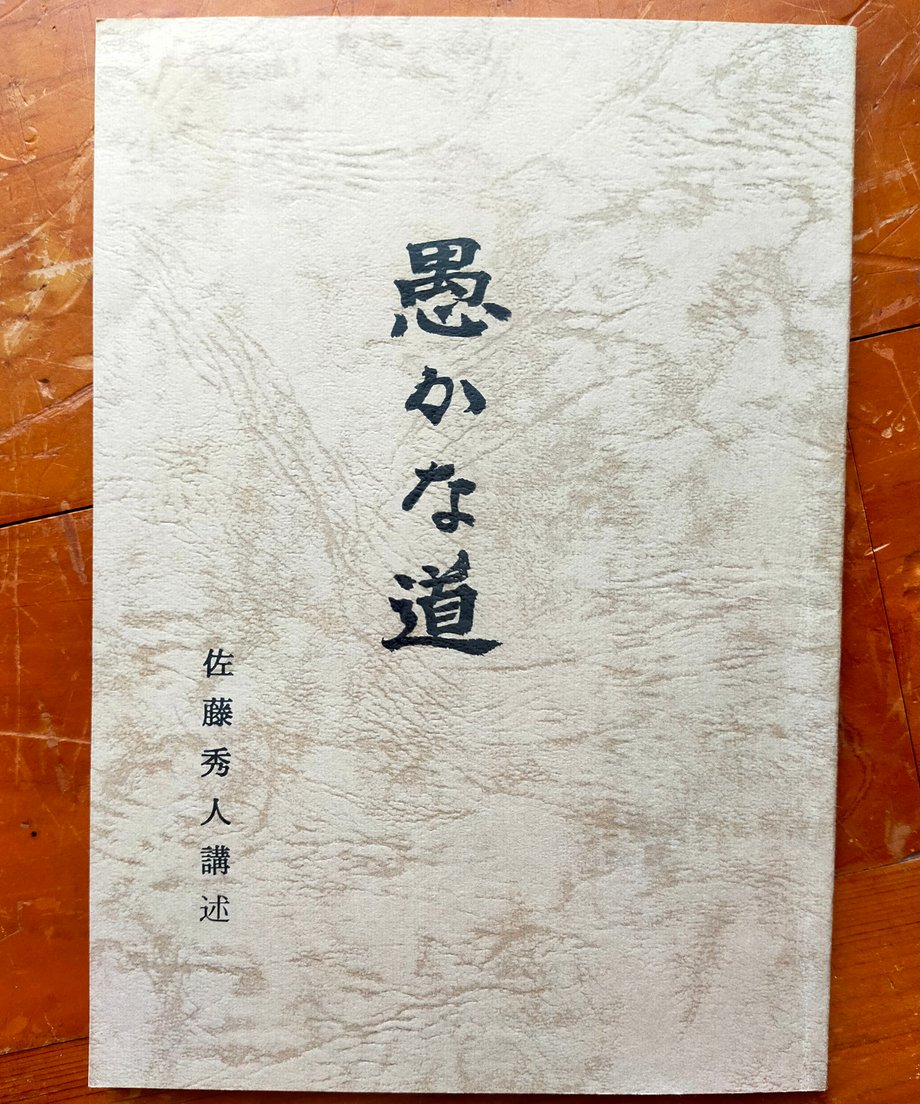 愚かな道
佐藤秀人講述